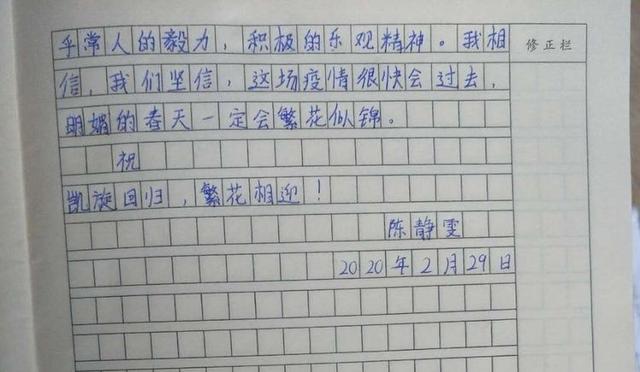 乎常人的毅力，积极的乐观精神。我相
修正栏
信，我们坚信，这场疫情很快会过去，
明媚的春天一定会繁花似锦。
祝
凯旋回归，繁花相迎！
陈静雯
2020年2月29日